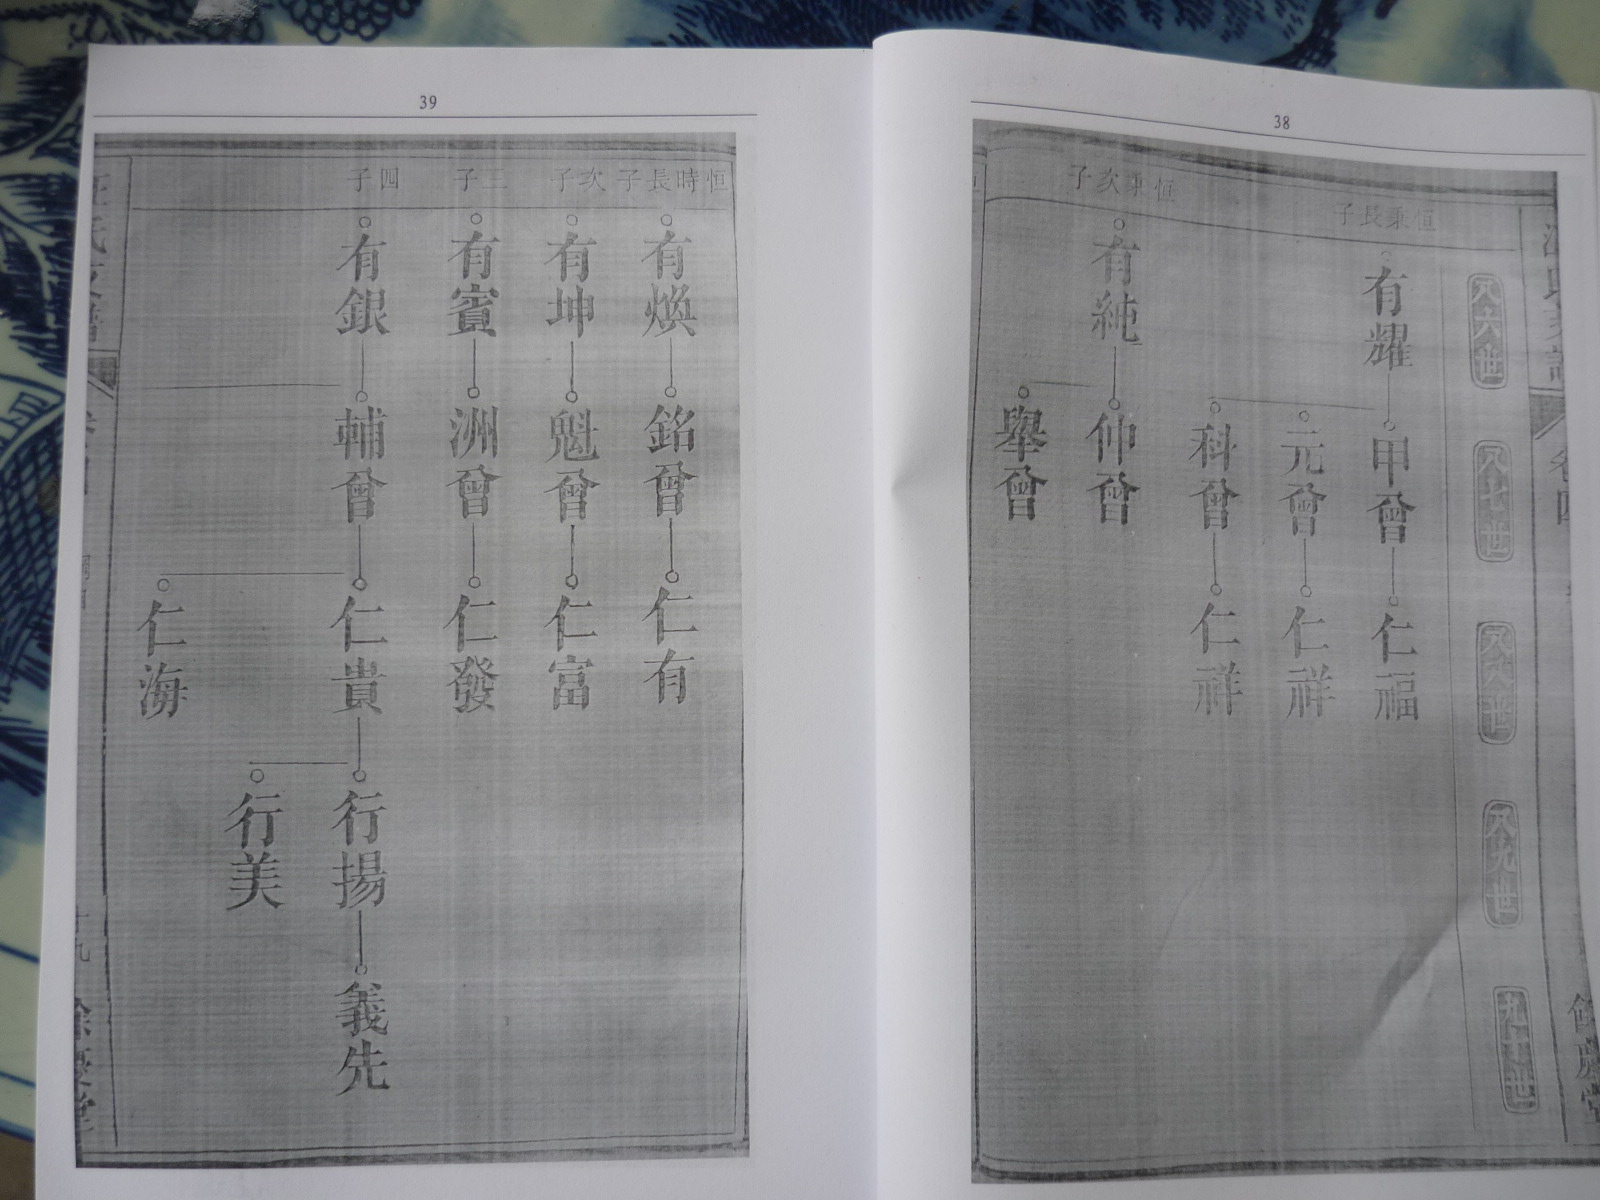 38
八六世
八七世
八八世
八九世
九十世
恒乘長子
有耀
甲曾
仁福
元曾
仁祥
科曾
仁祥
恒乘次子
有純
仲曾
舉曾
39
恒時長子
有煥
銘曾
仁有
次子
有坤
魁曾
仁富
三子
有賓
洲曾
仁發
四子
有銀
輔曾
仁貴
行揚
義先
行美
仁海